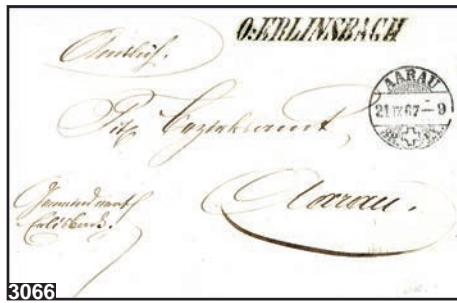 O:ERLINSBACH
Amtlich.
AARAU
21 IX 67 – 9
Tit. Bezirksamt
Aarau.
3066